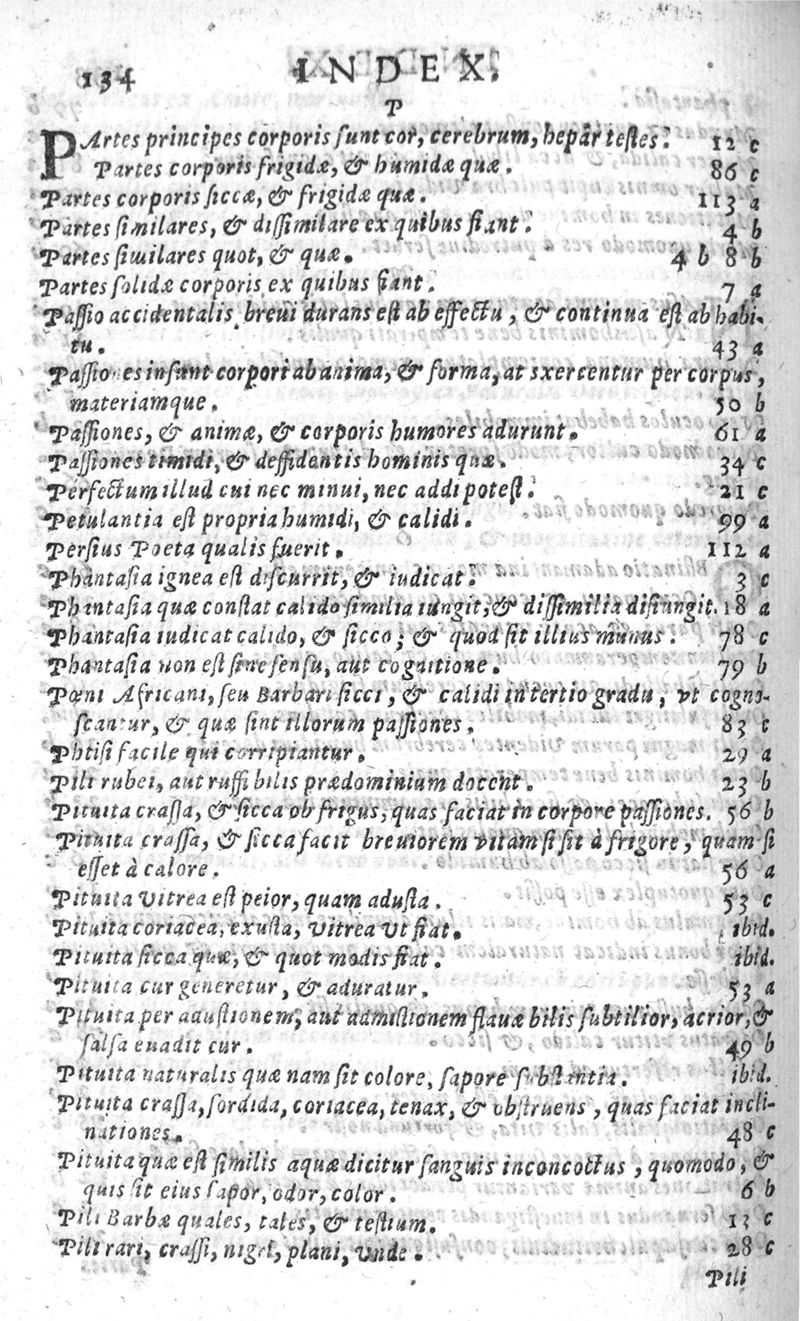 134 INDEX.
P
PArtes principes corporis sunt cor, cerebrum, hepar testes. 12 c
Partes corporis frigidæ, & humidæ quæ. 86 c
Partes corporis siccæ, & frigidæ quæ. 113 a
Partes similares, & dissimilare ex quibus fiant. 4 b
Partes similares quot, & quæ. 4 b 8 b
Partes solidæ corporis ex quibus fiant. 7 a
Passio accidentalis breui durans est ab effectu, & continua est ab habi-
tu. 43 a
Passiones insunt corpori ab anima, & forma, at sxercentur per corpus,
materiamque. 50 b
Passiones, & animæ, & corporis humores adurunt. 61 a
Passiones timidi, & deffidentis hominis quæ. 34 c
Perfectum illud cui nec minui, nec addi potest. 21 c
Petulantia est propria humidi, & calidi. 99 a
Persius Poeta qualis fuerit. 112 a
Phantasia ignea est discurrit, & iudicat. 3 c
Phantasia quæ constat calido similia iungit, & dissimilia disiungit. 18 a
Phantasia iudicat calido, & sicco; & quod sit illius munus. 78 c
Phantasia non est sine sensu, aut cognitione. 79 b
Pœni Africani, seu Barbari sicci, & calidi in tertio gradu, vt cogno-
scantur, & quæ sint illorum passiones. 83 c
Phtisi facile qui corripiantur. 29 a
Pili rubei, aut ruffi bilis prædominium docent. 23 b
Pituita crassa, & sicca ob frigus, quas faciat in corpore passiones. 56 b
Pituita crassa, & sicca facit breuiorem vitam si sit à frigore, quam si
esset à calore. 56 a
Pituita vitrea est peior, quam adusta. 53 c
Pituita coriacea, exusta, vitrea vt fiat. ibid.
Pituita sicca quæ, & quot modis fiat. ibid.
Pituita cur generetur, & aduratur. 53 a
Pituita per adustionem, aut admistionem flauæ bilis subtilior, acrior, &
salsa euadit cur. 49 b
Pituita naturalis quæ nam sit colore, sapore substantia. ibid.
Pituita crassa, sordida, coriacea, tenax, & obstruens, quas faciat incli-
nationes. 48 c
Pituita quæ est similis aquæ dicitur sanguis inconcoctus, quomodo, &
quis sit eius sapor, odor, color. 6 b
Pili Barbæ quales, tales, & testium. 13 c
Pili rari, crassi, nigri, plani, vnde. 28 c
Pili